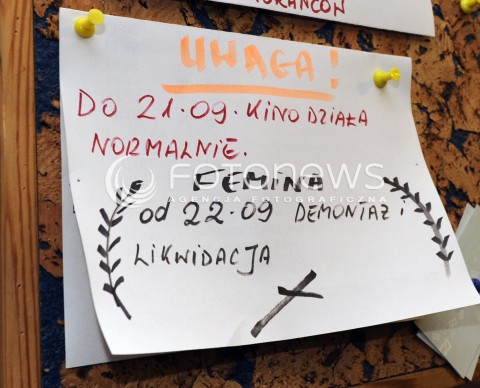 ORANCON
UWAGA!
DO 21.09. KINO DZIAŁA
NORMALNIE.
FEMINA
FOTONEWS
AGENCJA FOTOGRAFICZNA
od 22.09 DEMONTAŻ i
LIKWIDACJA